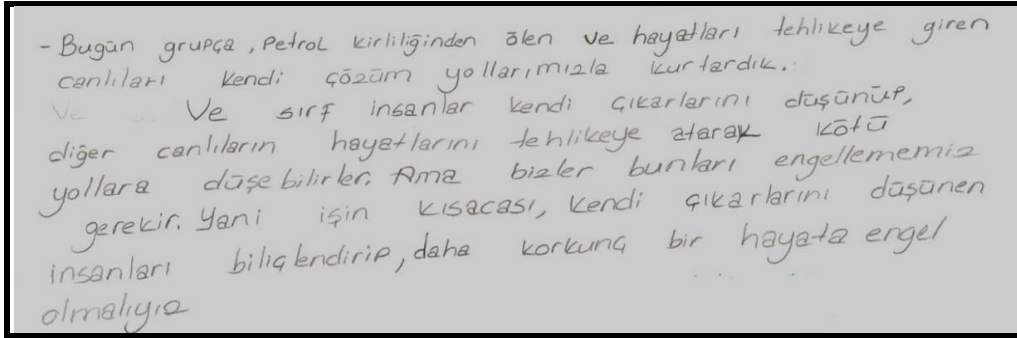 - Bugün grupça, Petrol kirliliğinden ölen ve hayatları tehlikeye giren
canlıları kendi çözüm yollarımızla kurtardık.
Ve Ve sırf insanlar kendi çıkarlarını düşünüp,
diğer canlıların hayatlarını tehlikeye atarak kötü
yollara düşebilirler. Ama bizler bunları engellememiz
gerekir. Yani işin kısacası, kendi çıkarlarını düşünen
insanları biliçlendirip, daha korkunç bir hayata engel
olmalıyız